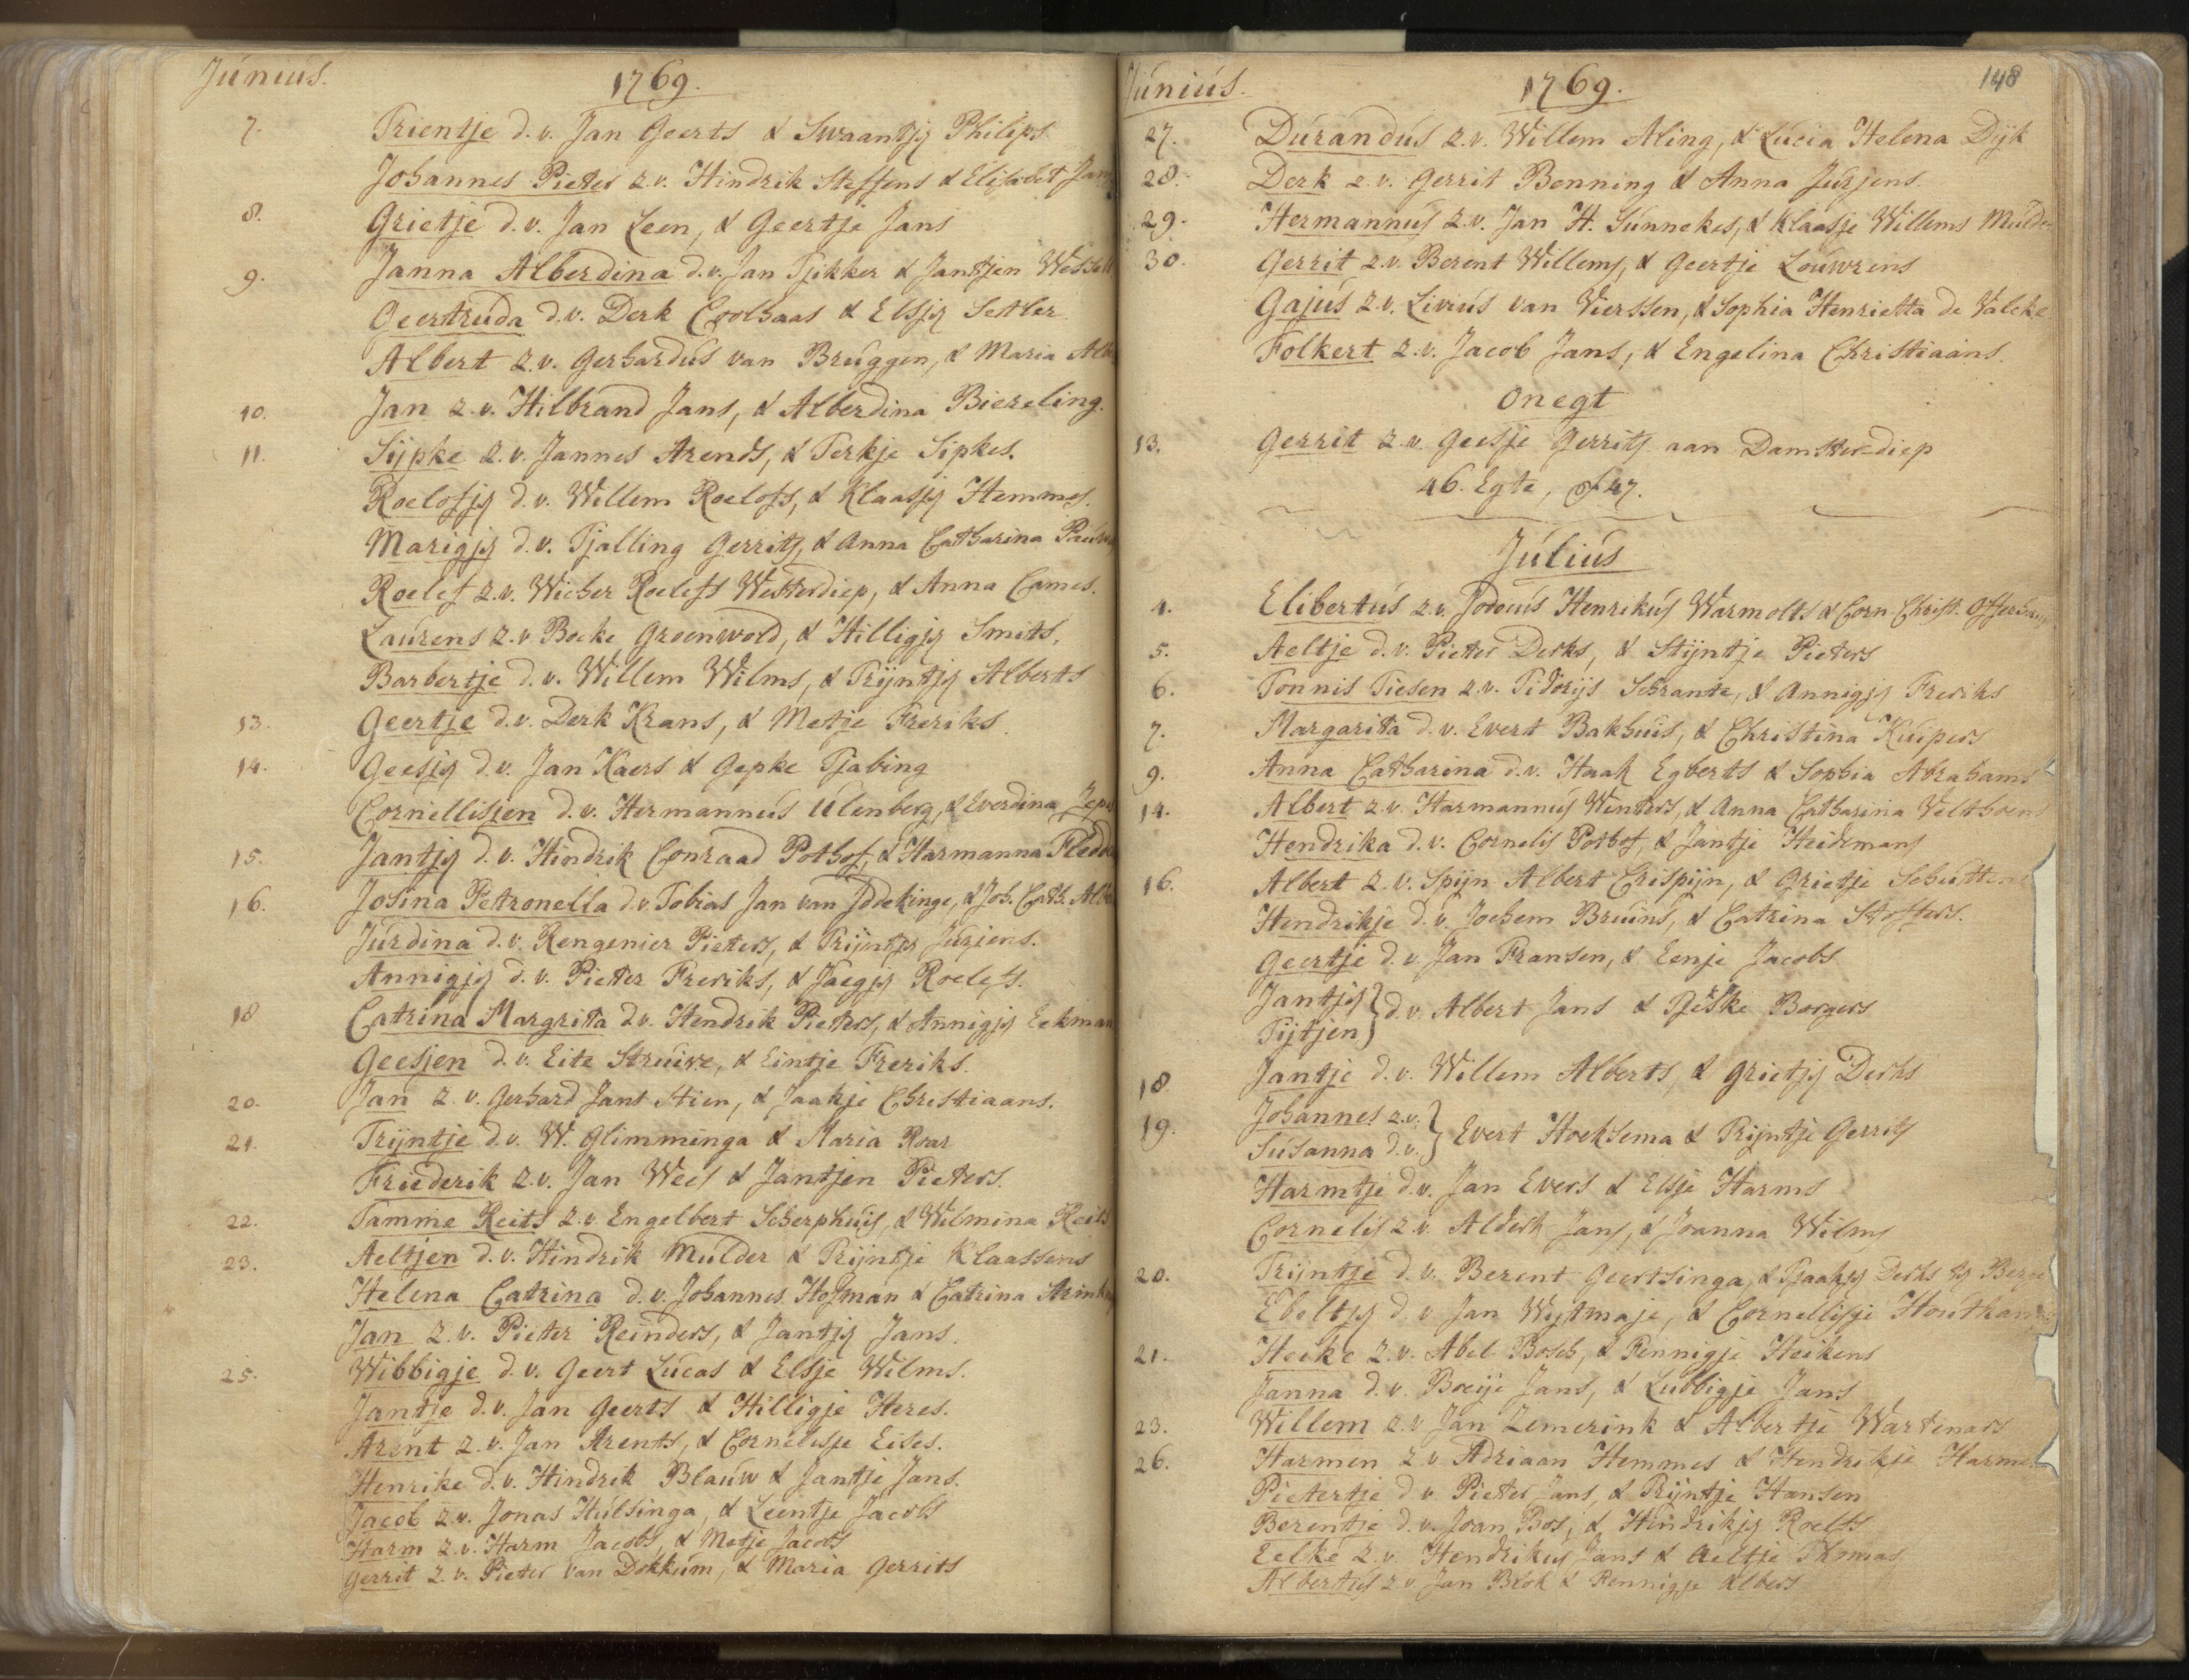 Junius.
1769.
7. Trientje d.v. Jan Geerts & Swaantjy Philips.
Johannes Pieter z.v. Hindrik Steffens & Elisabet Jans
8. Grietje d.v. Jan Leen, & Geertje Jans
9. Janna Alberdina d.v. Jan Tjikker & Jantjen Wessels
Geertruda d.v. Derk Coolhaas & Elsjy Setler
Albert z.v. Gerhardus van Bruggen, & Maria
10. Jan z.v. Hilbrand Jans, & Alberdina Biereling.
11. Sijpke z.v. Jannes Arends, & Terkje Sipkes.
Roelofjy d.v. Willem Roelofs, & Klaasjy Hemmes.
Marigjy d.v. Tjalling Gerrits, & Anna Catharina
Roelef z.v. Wicher Roelefs Westerdiep, & Anna Cames.
Laurens z.v. Bocke Groenwold, & Hilligjy Smits.
Barbertje d.v. Willem Wilms, & Trijntjy Alberts
13. Geertje d.v. Derk Krans, & Metje Freriks.
14. Geesjy d.v. Jan Kaers & Gepke Tjabing
Cornellisjen d.v. Hermannus Ulenberg, & Everdina
15. Jantjy d.v. Hindrik Conraad Pothof, & Harmanna
16. Josina Petronella d.v. Tobias Jan van Iddekinge, & Joh. Cath.
Jurdina d.v. Rengenier Pieters, & Trijntjy Jurjens.
Annigjy d.v. Pieter Freriks, & Jaegjy Roelefs.
18 Catrina Margrita d.v. Hendrik Pieters, & Annigjy Eekman
Geesjen d.v. Eite Struive, & Eintje Freriks.
20. Jan z.v. Gerhard Jans Stien, & Jaakje Christiaans.
21. Trijntje d.v. W. Glimminga & Maria Roar
Friederik z.v. Jan Weel & Jantjen Pieters.
22. Tamme Reits z.v. Engelbert Scherphuis, & Wilmina Reits
23. Aeltjen d.v. Hindrik Mulder & Trijntje Klaassens
Helena Catrina d.v. Johannes Hofman & Catrina
Jan z.v. Pieter Reinders, & Jantjy Jans.
25. Wibbigje d.v. Geert Lucas & Elsje Wilms.
Jantje d.v. Jan Geerts & Hilligje Heres.
Arent z.v. Jan Arents, & Cornelisje Eises.
Henrike d.v. Hindrik Blauw & Jantje Jans.
Jacob z.v. Jonas Hulsinga, & Leentje Jacobs
Harm z.v. Harm Jacobs, & Metje Jacobs
Gerrit z.v. Pieter van Dokkum, & Maria Gerrits
Junius.
1769.
148
27. Durandus z.v. Willem Aling, & Lucia Helena Dijk
28. Derk z.v. Gerrit Benning & Anna Jurjens.
29. Hermannus z.v. Jan H. Sunnekes, & Klaasje Willems Mulder
30. Gerrit z.v. Berent Willems, & Geertje Louwrens
Gajus z.v. Livius van Vierssen, & Sophia Henrietta de Valcke
Folkert z.v. Jacob Jans, & Engelina Christiaans.
Onegt
13. Gerrit z.v. Geesje Gerrits aan Damster-diep
46. Egte, of 47.
Julius
4. Elibertus z.v. Jodocus Henrikus Warmolts & Corn. Christ. Offerhaus
5. Aeltje d.v. Pieter Derks, & Stijntje Pieters
6. Tonnis Tiesen z.v. Schrante, & Annigjy Freriks
7. Margarita d.v. Evert Bakhuis, & Christina Kuipers
9. Anna Catharina d.v. Haak Egberts & Sophia Abrahams
14. Albert z.v. Harmannus Winters, & Anna Catharina Velthoens
Hendrika d.v. Cornelis Pothof, & Jantje Heidemans
16. Albert z.v. Spijn Albert Crispijn, & Grietje
Hendrikje d.v. Jochem Bruins, & Catrina Stoffers.
Geertje d.v. Jan Fransen, & Eenje Jacobs
Jantjy } d.v. Albert Jans & Borgers
Tijtjen }
18. Jantje d.v. Willem Alberts, & Grietjy Derks
19. Johannes z.v. } Evert Hoeksema & Trijntje Gerrits
Susanna d.v. }
Harmtje d.v. Jan Evers & Elsje Harms
Cornelis z.v. Alderk Jans, & Joanna Wilms
20. Trijntje d.v. Berent Geertsinga, & Tjaakjy Derks
Eboltjy d.v. Jan Wijtmaje, & Cornellisje
21. Heike z.v. Abel Bosch, & Pennigje Heikens
Janna d.v. Boeije Jans, & Lubbigje Jans
23. Willem z.v. Jan Zemerink & Albertje Wartenaars
26. Harmen z.v. Adriaan Hemmes & Hendrikje
Pietertje d.v. Pieter Jans, & Trijntje Hansen
Berentje d.v. Joan Bos, & Hindrikjy Roelfs
Eelke z.v. Hendrikus Jans & Aeltje Thomas
Albertus z.v. Jan Blok & Rennigje Albers